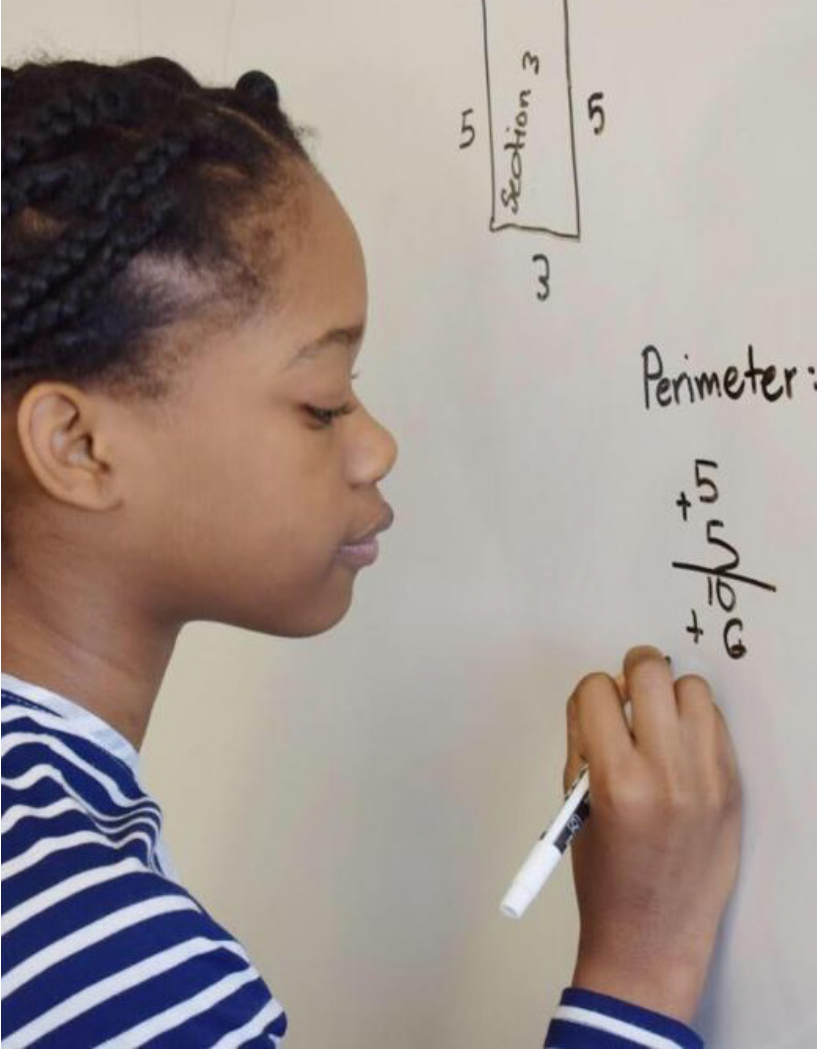 Section 3
5
5
3
Perimeter:
+5
5
10
+ 6